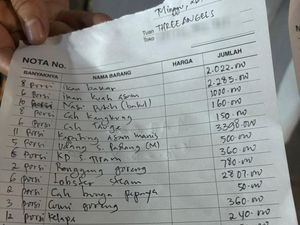 Minggu, 20
Tuan
Toko
THREE ANGELS
NOTA No.
BANYAKNYA NAMA BARANG HARGA JUMLAH
8 porsi Ikan bakar 2.022.000
6 porsi Ikan kuah asam 2.283.000
10 Nasi putih (bakul) 1000.000
8 porsi Cah kangkung 160.000
6 porsi Cah 150.000
11 porsi Kepiting asam manis 3398.000
5 porsi Udang S. Padang (M) 500.000
5 porsi KP S. Tiram 360.000
2 porsi goreng 780.000
6 porsi Lobster steam 2807.000
2 porsi Cah bunga pepaya 50.000
3 porsi Cumi goreng 360.000
12 porsi Kelapa 240.000